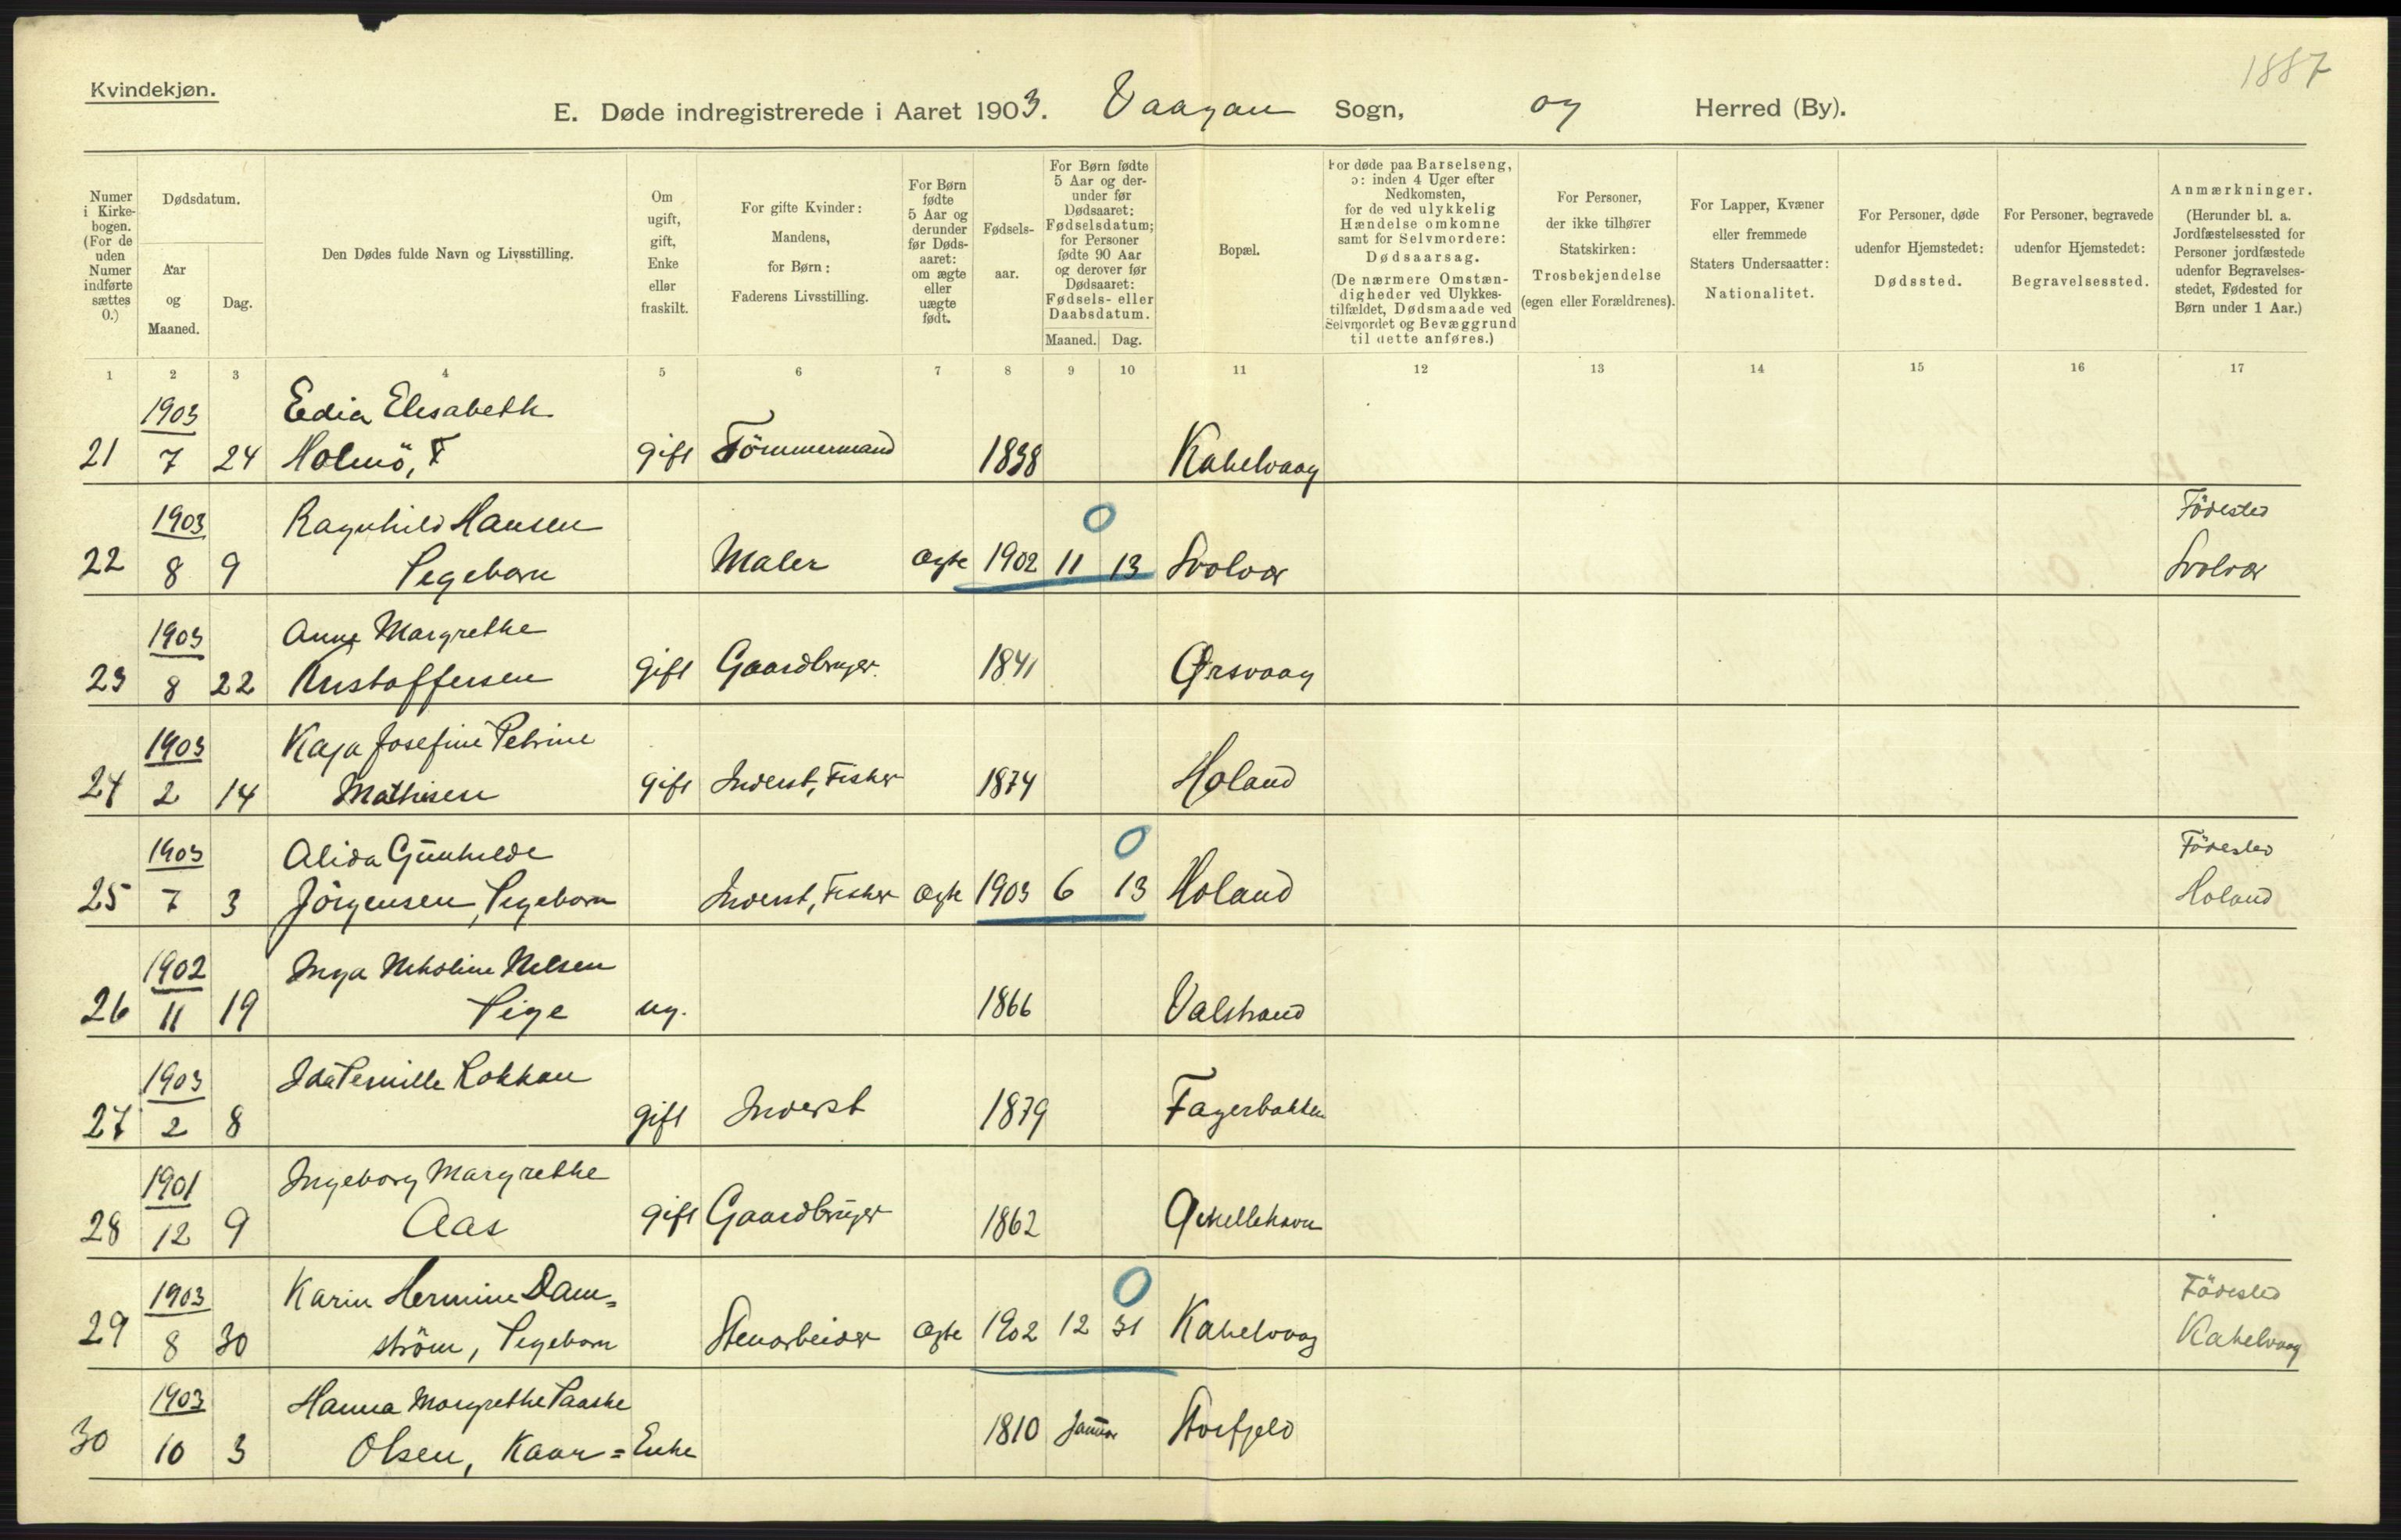 1887
Kvindekjøn.
E. Døde indregistrerede i Aaret 1903. Vaagan Sogn, og Herred (By).
Numer i Kirke-bogen. (For de uden Numer indførte sættes 0.)
Dødsdatum.
Aar og Maaned.
Dag.
Den Dødes fulde Navn og Livsstilling.
Om ugift, gift, Enke eller fraskilt.
For gifte Kvinder: Mandens, for Børn: Faderens Livsstilling.
For Børn fødte 5 Aar og derunder før Døds-aaret: om ægte eller uægte født.
Fødsels-aar.
For Børn fødte 5 Aar og der-under før Dødsaaret: Fødselsdatum; for Personer fødte 90 Aar og derover før Dødsaaret: Fødsels- eller Daabsdatum.
Maaned. Dag.
Bopæl.
For døde paa Barselseng, ɔ: inden 4 Uger efter Nedkomsten, for de ved ulykkelig Hændelse omkomne samt for Selvmordere: Dødsaarsag. (De nærmere Omstæn-digheder ved Ulykkes-tilfældet, Dødsmaade ved Selvmordet og Bevæggrund til dette anføres.)
For Personer, der ikke tilhører Statskirken: Trosbekjendelse (egen eller Forældrenes).
For Lapper, Kvæner eller fremmede Staters Undersaatter: Nationalitet.
For Personer, døde udenfor Hjemstedet: Dødssted.
For Personer, begravede udenfor Hjemstedet: Begravelsessted.
Anmærkninger. (Herunder bl. a. Jordfæstelsessted for Personer jordfæstede udenfor Begravelses-stedet, Fødested for Børn under 1 Aar.)
1 2 3 4 5 6 7 8 9 10 11 12 13 14 15 16 17
1903 Edia Elisabeth
21 7 24 Holmö, F gift Tömmermand 1838 Kabelvaag
1903 Ragnhild Hansen 0 Födested
22 8 9 Pigebarn Maler ægte 1902 11 13 Svolvær Svolvær
1903 Anne Margrethe
23 8 22 Kristoffersen gift Gaardbruger. 1841 Ørsvaag
1903 Kaja Josefine Petrine
24 2 14 Mathisen gift Inderst, Fisker 1874 Holand
1903 Alida Gunhilde 0 Födested
25 7 3 Jörgensen, Pigebarn Inderst, Fisker ægte 1903 6 13 Holand Holand
1902 Inga Nikoline Nilsen
26 11 19 Pige ug. 1866 Valstrand
1903 Ida Pernille Rokkan
27 2 8 gift Inderst 1879 Fagerbakken
1901 Ingeborg Margrethe
28 12 9 Aas gift Gaardbruger 1862
1903 Karin Hermine Dam= 0 Födested
29 8 30 ström, Pigebarn Stenarbeider ægte 1902 12 31 Kabelvaag Kabelvaag
1903 Hanna Margrethe Paaske
30 10 3 Olsen, Kaar= Enke 1810 Januar Storfjeld